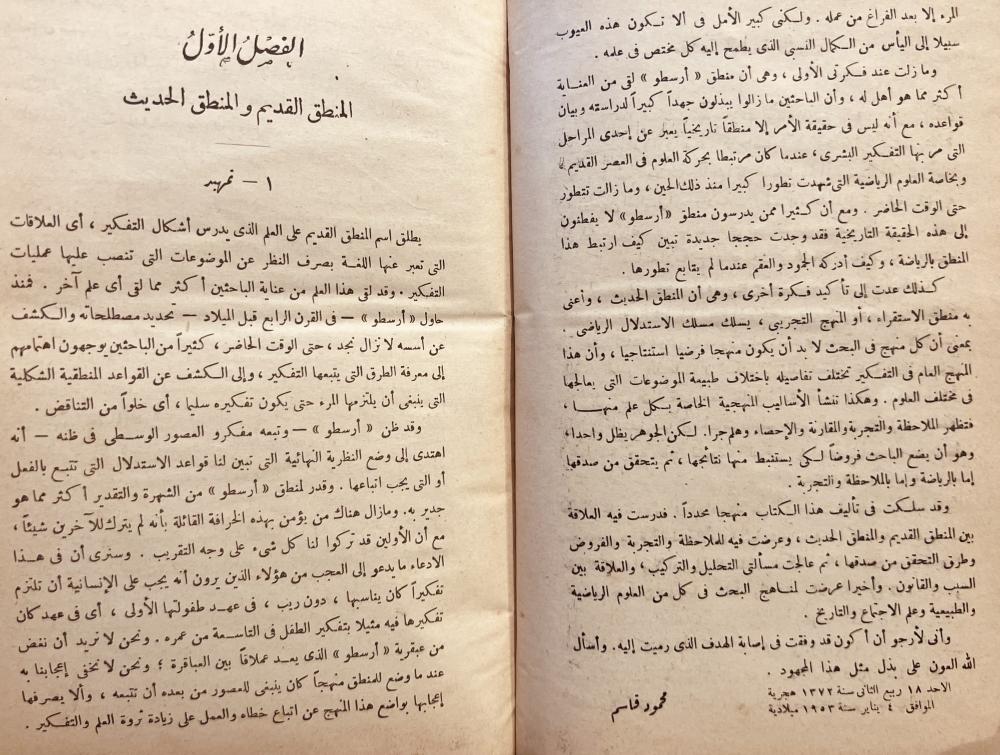 المرء إلا بعد الفراغ من عمله . ولكنى كبير الأمل فى ألا تكون هذه العيوب
سبيلا إلى اليأس من الكمال النسبى الذى يطمح إليه كل مختص فى علمه .
وما زلت عند فكرتى الأولى ، وهى أن منطق « أرسطو » لقى من العناية
أكثر مما هو أهل له ، وأن الباحثين ما زالوا يبذلون جهداً كبيراً لدراسته وبيان
قواعده ، مع أنه ليس فى حقيقة الأمر إلا منطقاً تاريخياً يعبر عن إحدى المراحل
التى مر بها التفكير البشرى ، عندما كان مرتبطا بحركة العلوم فى العصر القديم ،
وبخاصة العلوم الرياضية التى شهدت تطورا كبيرا منذ ذلك الحين ، وما زالت تتطور
حتى الوقت الحاضر . ومع أن كثيرا ممن يدرسون منطق « أرسطو » لا يفطنون
إلى هذه الحقيقة التاريخية فقد وجدت حججا جديدة تبين كيف ارتبط هذا
المنطق بالرياضة ، وكيف أدركه الجمود والعقم عندما لم يتابع تطورها .
كذلك عدت إلى تأكيد فكرة أخرى ، وهى أن المنطق الحديث ، وأعنى
به منطق الاستقراء ، أو المنهج التجريبى ، يسلك مسلك الاستدلال الرياضى .
بمعنى أن كل منهج فى البحث لا بد أن يكون منهجا فرضيا استنتاجيا ، وأن هذا
المنهج العام فى التفكير تختلف تفاصيله باختلاف طبيعة الموضوعات التى يعالجها
فى مختلف العلوم . وهكذا تنشأ الأساليب المنهجية الخاصة بكل علم منهـا ،
فتظهر الملاحظة والتجربة والمقارنة والإحصاء وهلم جرا. لكن الجوهر يظل واحدا،
وهو أن يضع الباحث فروضاً لكى يستنبط منها نتائجها ، ثم يتحقق من صدقها
إما بالرياضة وإما بالملاحظة والتجربة .
وقد سلكت فى تأليف هذا الكتاب منهجا محدداً . فدرست فيه العلاقة
بين المنطق القديم والمنطق الحديث ، وعرضت فيه للملاحظة والتجربة والفروض
وطرق التحقق من صدقها ، ثم عالجت مسألتى التحليل والتركيب ، والعلاقة بين
السبب والقانون . وأخيرا عرضت لمناهج البحث فى كل من العلوم الرياضية
والطبيعية وعلم الاجتماع والتاريخ .
وأنى لأرجو أن أكون قد وفقت فى إصابة الهدف الذى رميت إليه . وأسأل
الله العون على بذل مثل هذا المجهود .
الاحد ١٨ ربيع الثانى سنة ١٣٧٢ هجرية
الموافق ٤ يناير سنة ١٩٥٣ ميلادية
محمود قاسم
الفصل الأول
المنطق القديم والمنطق الحديث
١ — تمهيد
يطلق اسم المنطق القديم على العلم الذى يدرس أشكال التفكير ، أى العلاقات
التى تعبر عنها اللغة بصرف النظر عن الموضوعات التى تنصب عليها عمليات
التفكير . وقد لقى هذا العلم من عناية الباحثين أكثر مما لقى أى علم آخر . فمنذ
حاول « أرسطو » — فى القرن الرابع قبل الميلاد — تحديد مصطلحاته والكشف
عن أسسه لا نزال نجد ، حتى الوقت الحاضر ، كثيراً من الباحثين يوجهون اهتمامهم
إلى معرفة الطرق التى يتبعها التفكير ، وإلى الكشف عن القواعد المنطقية الشكلية
التى ينبغى أن يلتزمها المرء حتى يكون تفكيره سليما ، أى خلواً من التناقض .
وقد ظن « أرسطو » — وتبعه مفكرو العصور الوسطى فى ظنه — أنه
اهتدى إلى وضع النظرية النهائية التى تبين لنا قواعد الاستدلال التى تتبع بالفعل
أو التى يجب اتباعها . وقدر لمنطق « أرسطو » من الشهرة والتقدير أكثر مما هو
جدير به. ومازال هناك من يؤمن بهذه الخرافة القائلة بأنه لم يترك للآخرين شيئاً ،
مع أن الأولين قد تركوا لنا كل شىء على وجه التقريب . وسنرى أن فى هـذا
الادعاء ما يدعو إلى العجب من هؤلاء الذين يرون أنه يجب على الإنسانية أن تلتزم
تفكيراً كان يناسبها ، دون ريب ، فى عهد طفولتها الأولى ، أى فى عهد كان
تفكيرها فيه مثيلا بتفكير الطفل فى التاسعة من عمره . ونحن لا نريد أن نغض
من عبقرية « أرسطو » الذى يعـد عملاقاً بين العباقرة ؛ ونحن لا نخفى إعجابنا به
عند ما وضع للمنطق منهجاً كان ينبغى للعصور من بعده أن تتبعه ، وألا يصرفها
إعجابها بواضع هذا المنهج عن اتباع خطاه والعمل على زيادة ثروة العلم والتفكير .